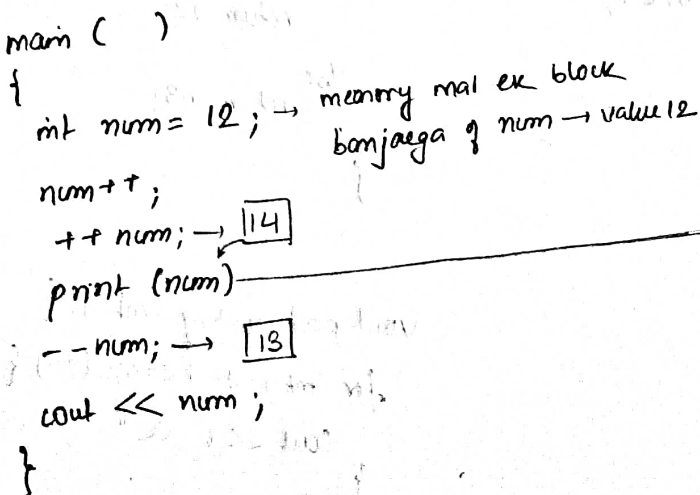 main ( )
{
int num = 12 ; → memory mai ek block
banjaega of num → value 12
num++ ;
++ num; → 14
print (num)
-- num; → 13
cout << num ;
}